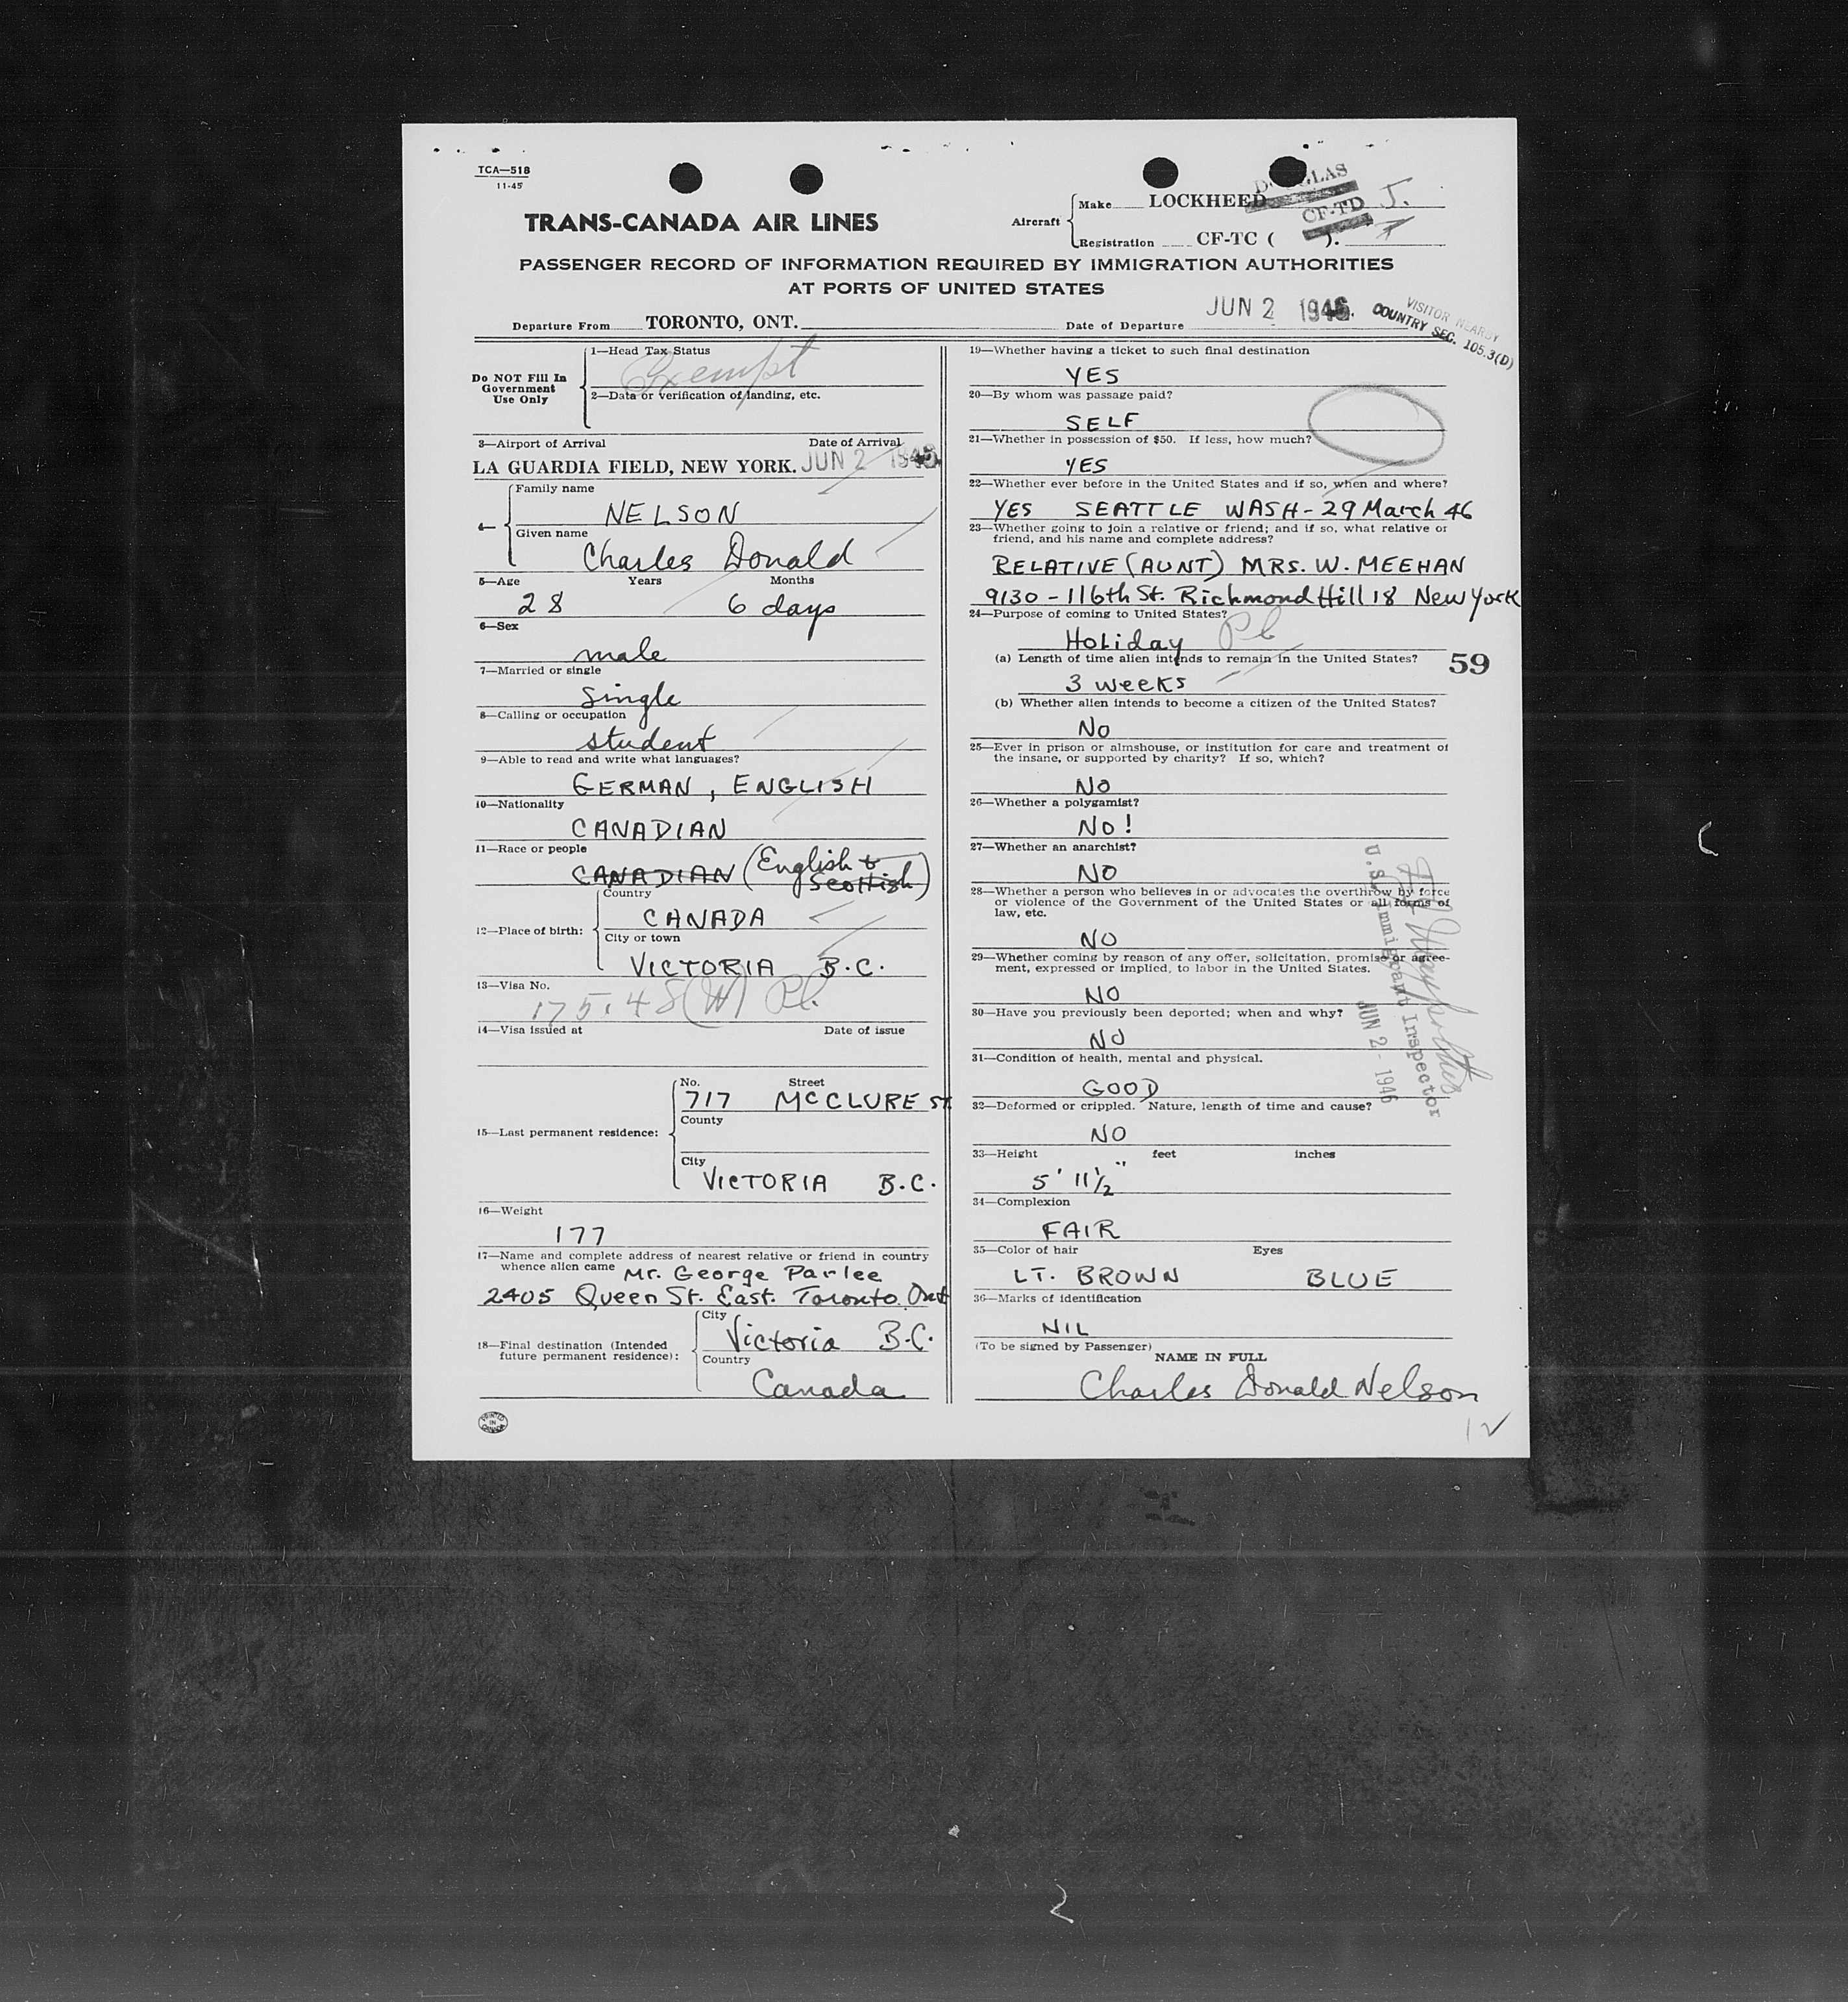 TCA—518
11-45
TRANS-CANADA AIR LINES
Aircraft
Make LOCKHEED
DOUGLAS
CF-TD J.
Registration CF-TC ( ).
PASSENGER RECORD OF INFORMATION REQUIRED BY IMMIGRATION AUTHORITIES
AT PORTS OF UNITED STATES
Departure From TORONTO, ONT.
Date of Departure JUN 2 1946.
VISITOR NEARBY
COUNTRY SEC. 105.3(D)
Do NOT Fill In
Government
Use Only
1—Head Tax Status
Exempt
2—Data or verification of landing, etc.
3—Airport of Arrival Date of Arrival
LA GUARDIA FIELD, NEW YORK. JUN 2 1946
4—
Family name
NELSON
Given name
Charles Donald
5—Age Years Months
28 6 days
6—Sex
male
7—Married or single
Single
8—Calling or occupation
student
9—Able to read and write what languages?
GERMAN, ENGLISH
10—Nationality
CANADIAN
11—Race or people
CANADIAN (English & Scottish)
12—Place of birth:
Country
CANADA
City or town
VICTORIA B.C.
13—Visa No.
175.48 (W) Pl.
14—Visa issued at Date of issue
15—Last permanent residence:
No. Street
717 McCLURE ST.
County
City
VICTORIA B.C.
16—Weight
177
17—Name and complete address of nearest relative or friend in country
whence alien came Mr. George Parlee
2405 Queen St. East. Toronto. Ont
18—Final destination (Intended
future permanent residence):
City
Victoria B.C.
Country
Canada
PRINTED
IN
CANADA
19—Whether having a ticket to such final destination
YES
20—By whom was passage paid?
SELF
21—Whether in possession of $50. If less, how much?
YES
22—Whether ever before in the United States and if so, when and where?
YES SEATTLE WASH - 29 March 46
23—Whether going to join a relative or friend; and if so, what relative or
friend, and his name and complete address?
RELATIVE (AUNT) MRS. W. MEEHAN
9130 - 116th St. Richmond Hill 18 New York
24—Purpose of coming to United States?
Holiday Pl
(a) Length of time alien intends to remain in the United States?
59
3 weeks
(b) Whether alien intends to become a citizen of the United States?
No
25—Ever in prison or almshouse, or institution for care and treatment of
the insane, or supported by charity? If so, which?
No
26—Whether a polygamist?
No!
27—Whether an anarchist?
NO
28—Whether a person who believes in or advocates the overthrow by force
or violence of the Government of the United States or all forms of
law, etc.
NO
29—Whether coming by reason of any offer, solicitation, promise or agree-
ment, expressed or implied, to labor in the United States.
NO
30—Have you previously been deported; when and why?
NO
31—Condition of health, mental and physical.
GOOD
32—Deformed or crippled. Nature, length of time and cause?
NO
U.S. Immigrant Inspector
JUN 2 - 1946
33—Height feet inches
5' 11½"
34—Complexion
FAIR
35—Color of hair Eyes
LT. BROWN BLUE
36—Marks of identification
NIL
(To be signed by Passenger)
NAME IN FULL
Charles Donald Nelson
12